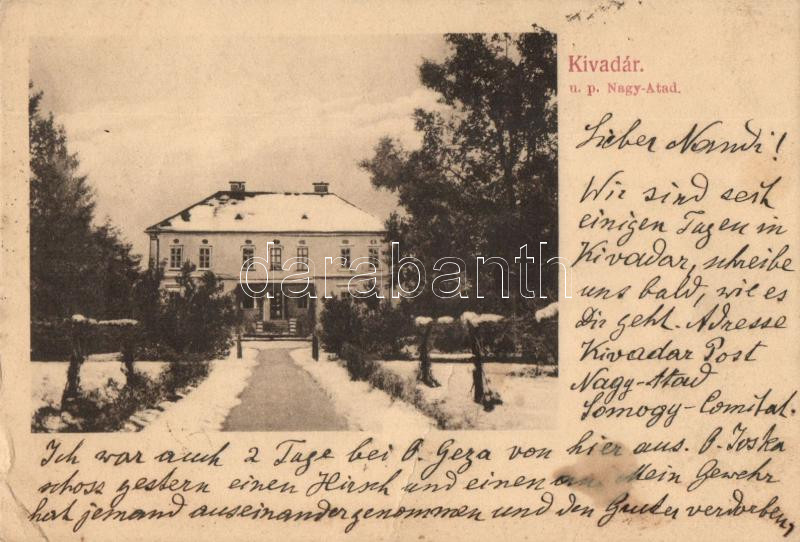 Kivadár.
u. p. Nagy-Atad.
Lieber Nandi!
Wir sind seit
einigen Tagen in
Kivadar, schreibe
uns bald, wie es
Dir geht. Adresse
Kivadar Post
Nagy-Atad
Somogy-Comitat.
darabanth.com
Ich war auch 2 Tage bei O. Geza von hier aus. O. Joska
schoss gestern einen Hirsch und einen Mein Gewehr
hat jemand auseinandergenommen und den verdorben,